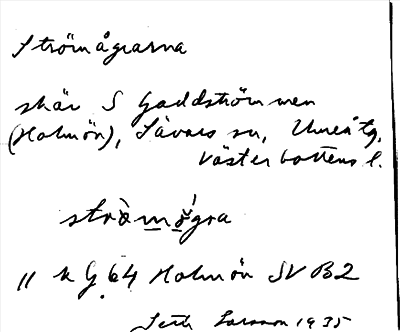 Strömågrarna
skär S Gaddströmmen
(Holmön), Sävars sn, Umeå tg,
Västerbottens l.
strò̀mǫ̀gra
" k G. 64 Holmön SV B2
Seth Larsson 1935